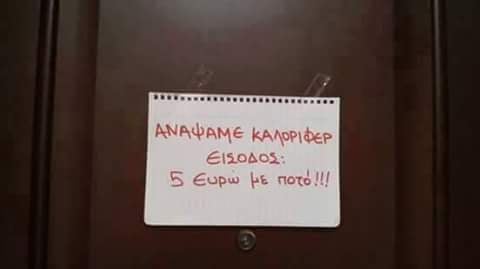 ΑΝΑΨΑΜΕ ΚΑΛΟΡΙΦΕΡ
ΕΙΣΟΔΟΣ:
5 ευρώ με ποτό!!!